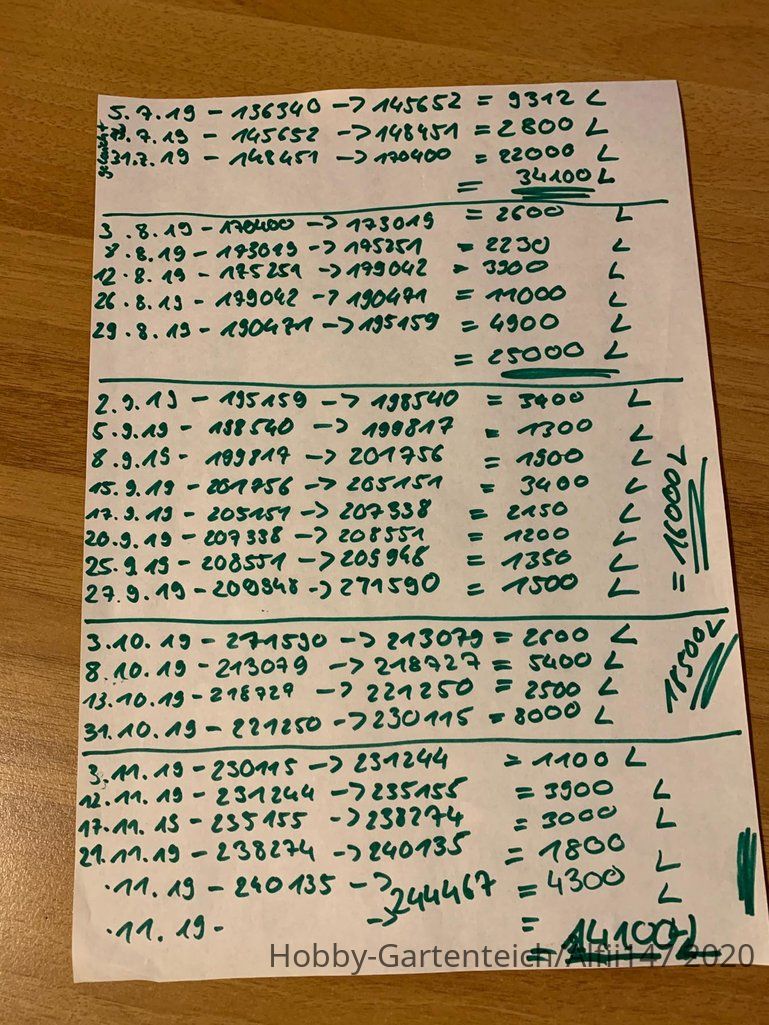 5.7.19 - 136340 -> 145652 = 9312 L
.7.19 - 145652 -> 148451 = 2800 L
31.7.19 - 148451 -> 170400 = 22000 L
= 34100 L
3.8.19 - 170400 -> 173019 = 2600 L
8.8.19 - 173019 -> 175251 = 2230 L
12.8.19 - 175251 -> 179042 = 3900 L
26.8.19 - 179042 -> 190471 = 11000 L
29.8.19 - 190471 -> 195159 = 4900 L
= 25000 L
2.9.19 - 195159 -> 198540 = 3400 L
5.9.19 - 198540 -> 199817 = 1300 L
8.9.19 - 199817 -> 201756 = 1900 L
15.9.19 - 201756 -> 205151 = 3400 L
17.9.19 - 205151 -> 207338 = 2150 L
20.9.19 - 207338 -> 208551 = 1200 L
25.9.19 - 208551 -> 209948 = 1350 L
27.9.19 - 209948 -> 271590 = 1500 L
= 16000 L
3.10.19 - 271590 -> 213079 = 2600 L
8.10.19 - 213079 -> 218727 = 5400 L
13.10.19 - 218727 -> 221250 = 2500 L
31.10.19 - 221250 -> 230115 = 8000 L
18500 L
3.11.19 - 230115 -> 231244 = 1100 L
12.11.19 - 231244 -> 235155 = 3900 L
17.11.19 - 235155 -> 238274 = 3000 L
21.11.19 - 238274 -> 240135 = 1800 L
.11.19 - 240135 -> 244467 = 4300 L
.11.19 - -> =
= 14100 L
Hobby-Gartenteich/Alfii147 2020